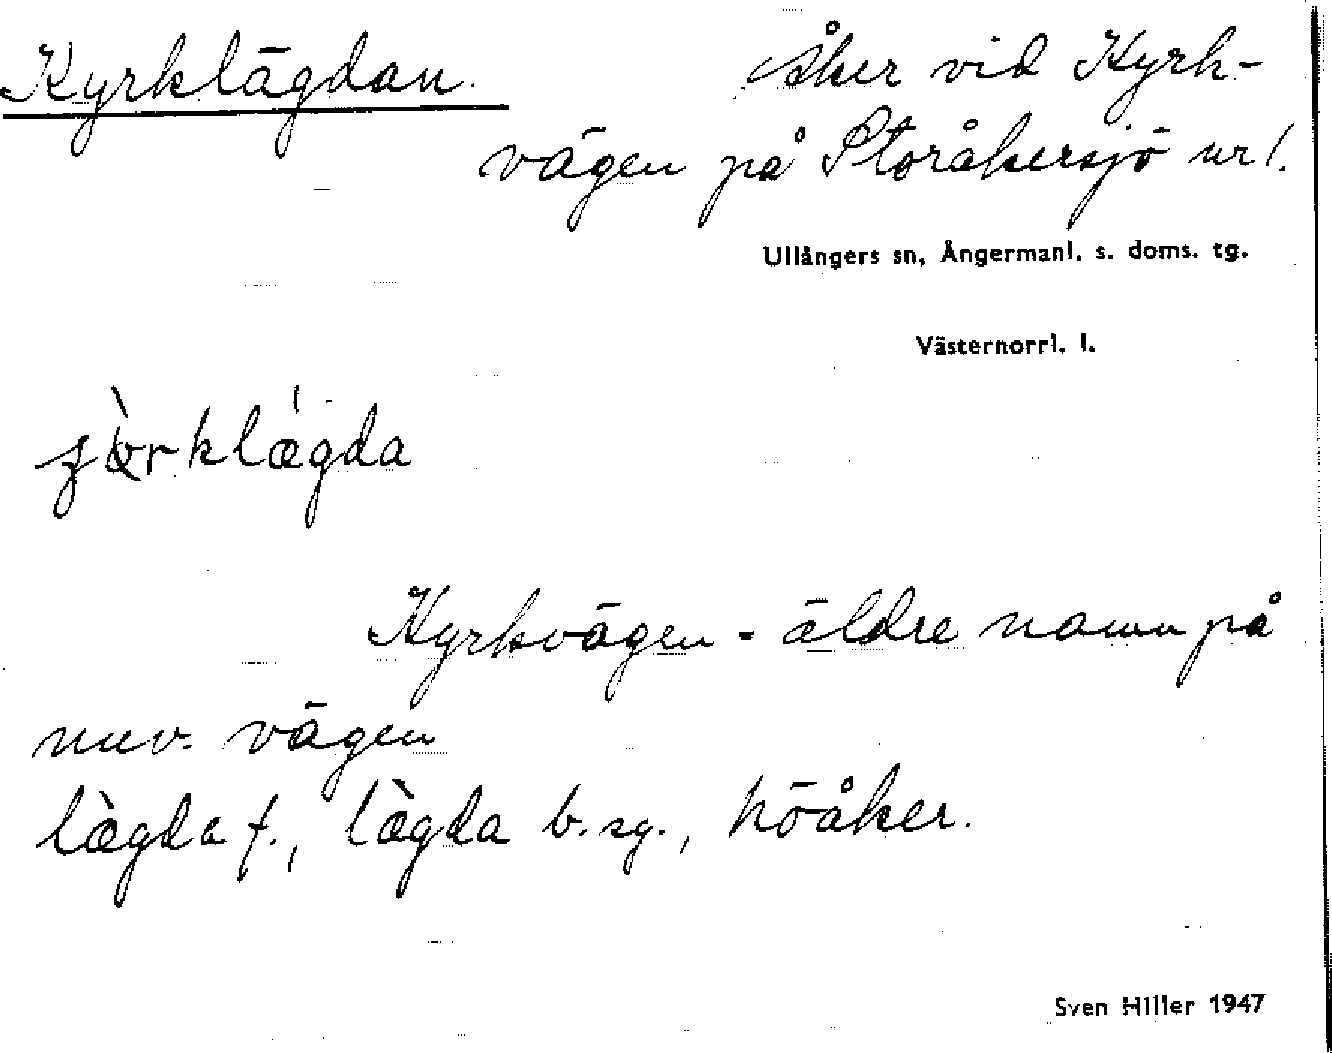 Kyrklägdan. Åker vid Kyrk-
vägen på Storåkersjö nr 1.
Ullångers sn, Ångermanl. s. doms. tg.
Västernorrl. l.
Kyrkvägen - äldre namn på
nuv. vägen
lægda f., lægda b. sg., höåker.
Sven Hiller 1947